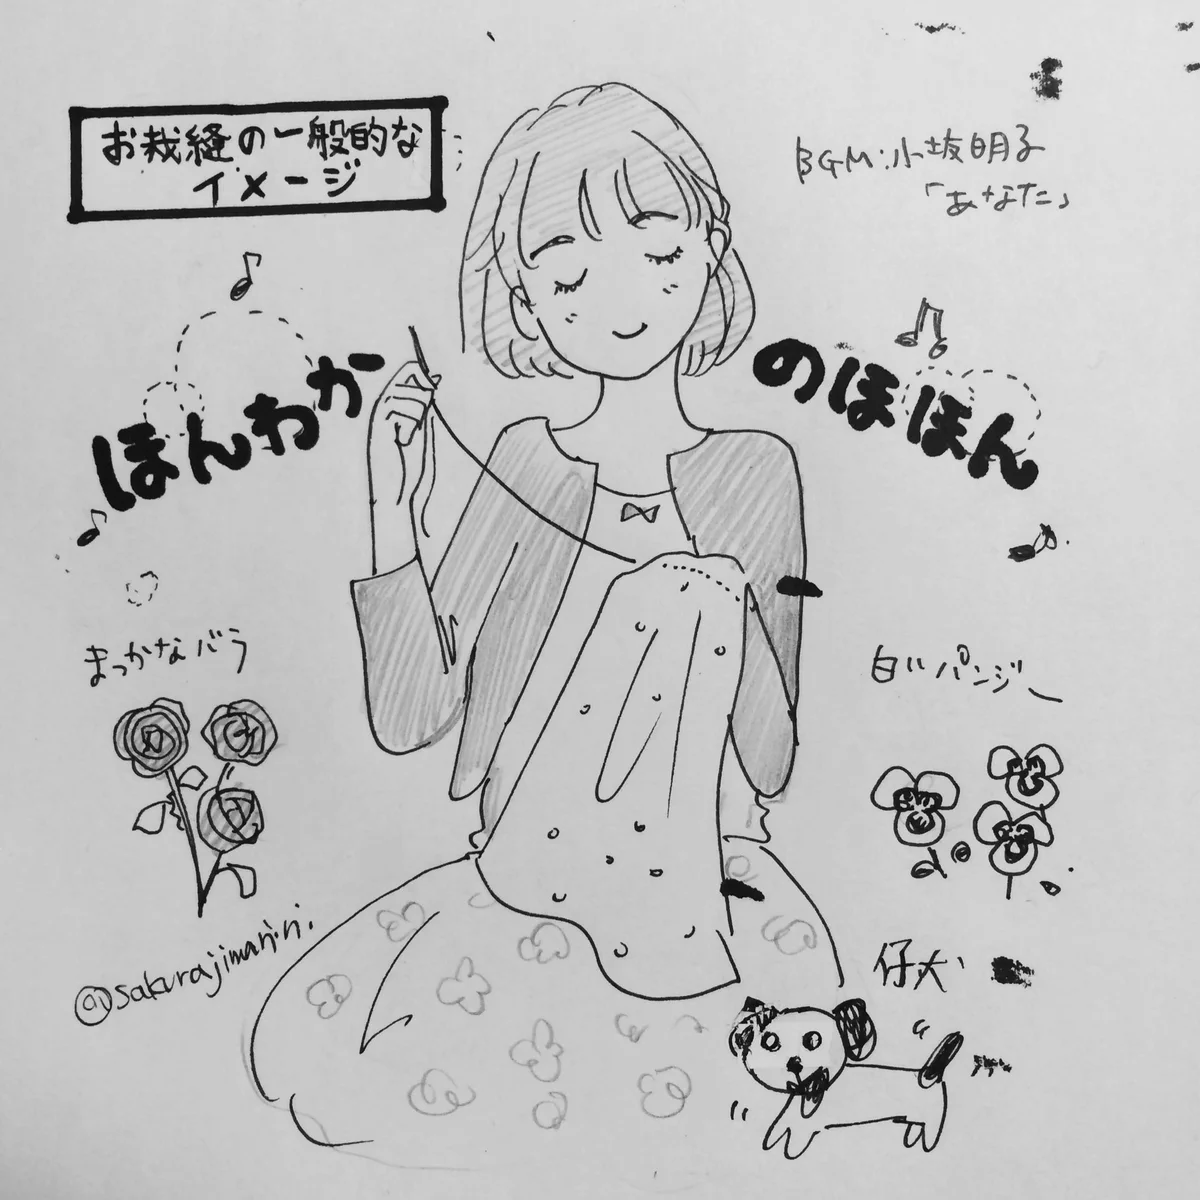 お裁縫の一般的な
イメージ
BGM:小坂明子
「あなた」
ほんわか
のほほん
まっかなバラ
白いパンジー
@sakurajimanini
仔犬